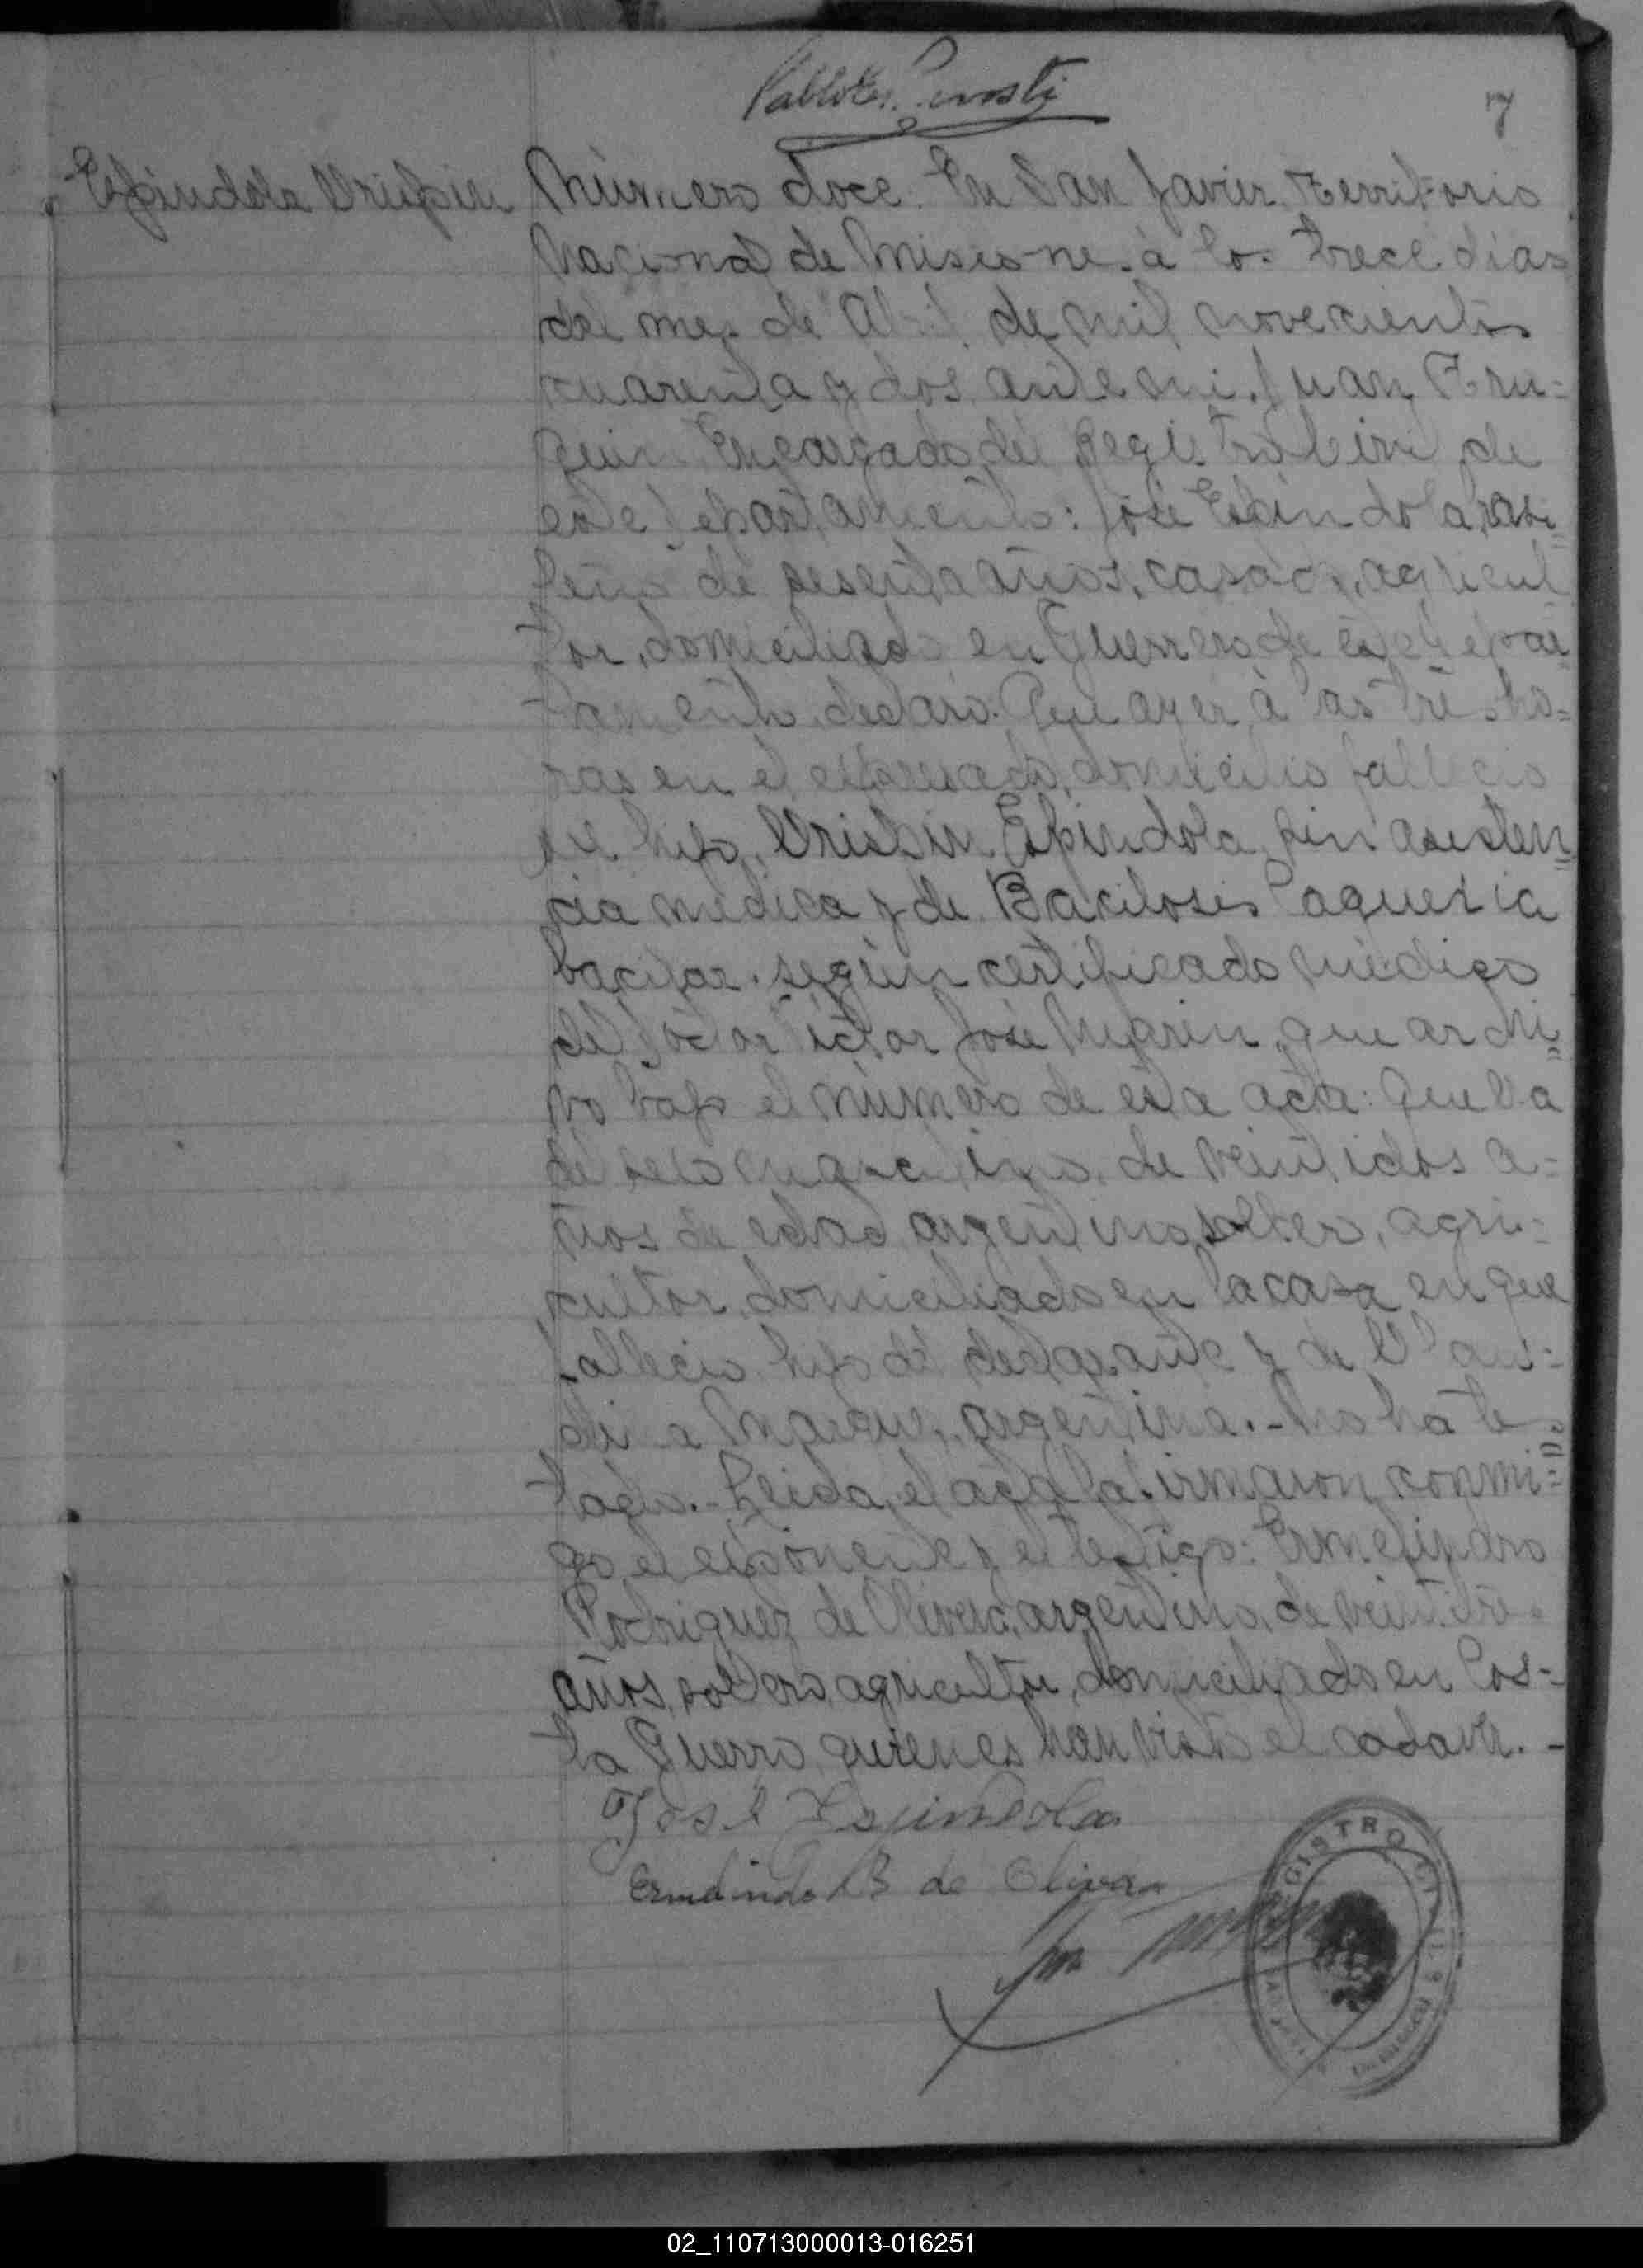 7
Espindola Crispin
Número doce. En San Javier, Territorio
Nacional de Misiones à los trece dias
del mes de Abril de mil novecientos
cuarenta y dos, ante mi, Juan
Encargado del Registro Civil de
este Departamento: José Espindola, brasi=
leño de sesenta años, casado, agricul
tor, domiciliado en Guerrero de este depar=
tamento declaró: Que ayer à las tres ho=
ras en el expresado domicilio falleció
su hijo, Crispin Espindola, sin asisten=
cia médica y de Bacilosis Caquexia
bacilar, según certificado médico
del Doctor Victor José Marin, que archi=
vo bajo el número de esta acta: Que era
de sexo masculino, de veintidos a=
ños de edad argentino, soltero, agri=
cultor, domiciliado en la casa en que
falleció hijo del declarante y de Clau=
dina argentina.- No ha tes=
tado.- Leida el acta la firmaron conmi=
go el exponente y el testigo: Ermelindro
Rodriguez de Olivera, argentino, de veintitres
años, soltero, agricultor, domiciliado en Cos=
ta Guerro, quienes han visto el cadaver. -
José Espindola
Ermelindo R de Olivera
REGISTRO CIVIL
02_110713000013-016251